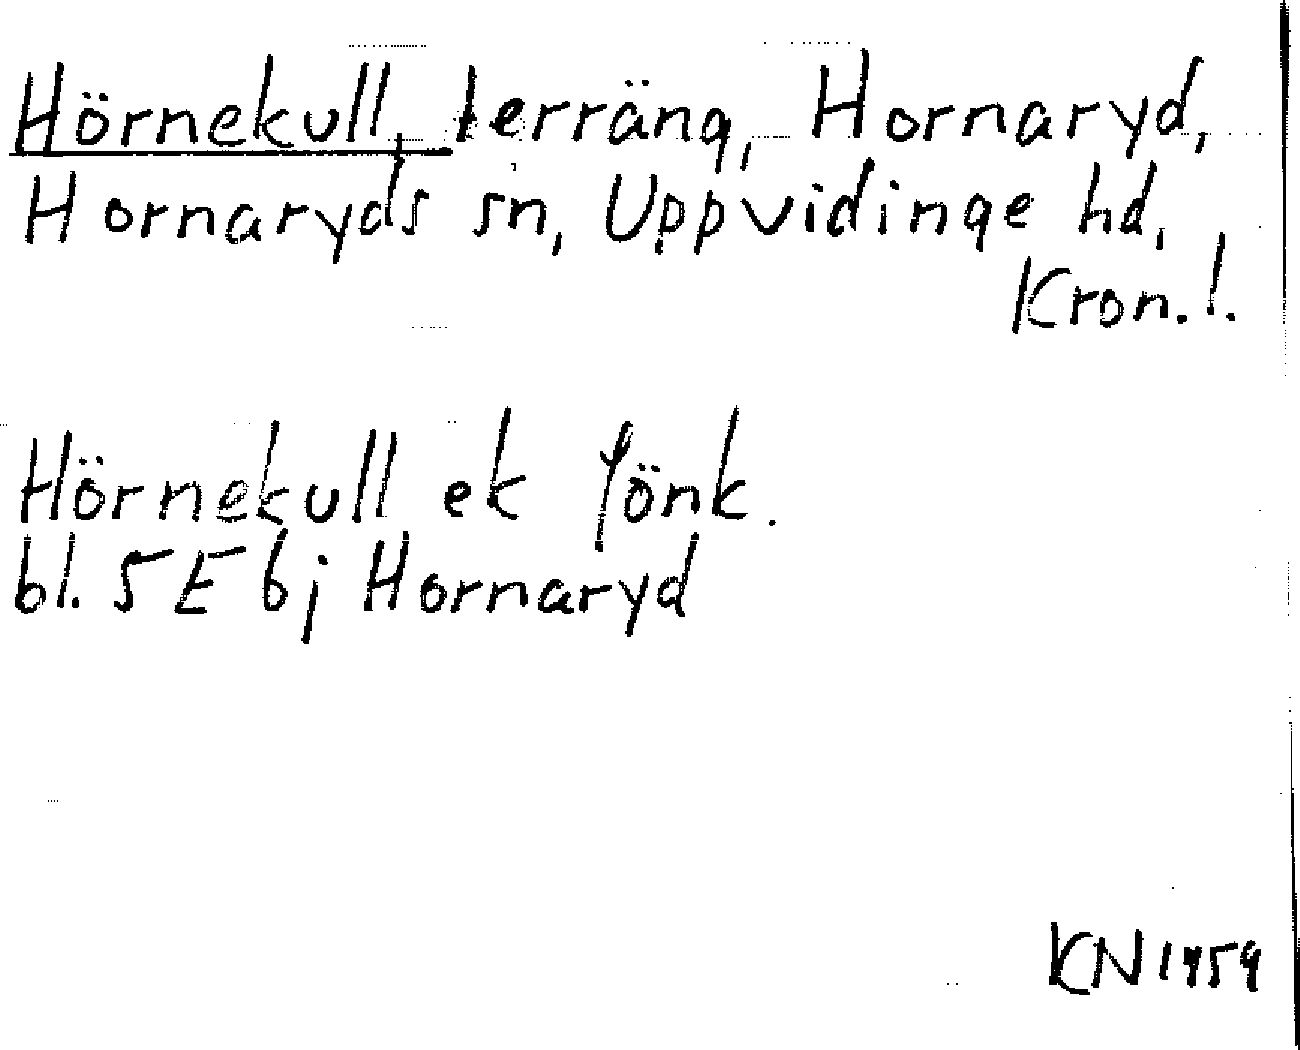 Hörnekull, terräng, Hornaryd,
Hornaryds sn, Uppvidinge hd,
Kron. l.
Hörnekull ek Jönk.
bl. 5 E 6j Hornaryd
KN 1959